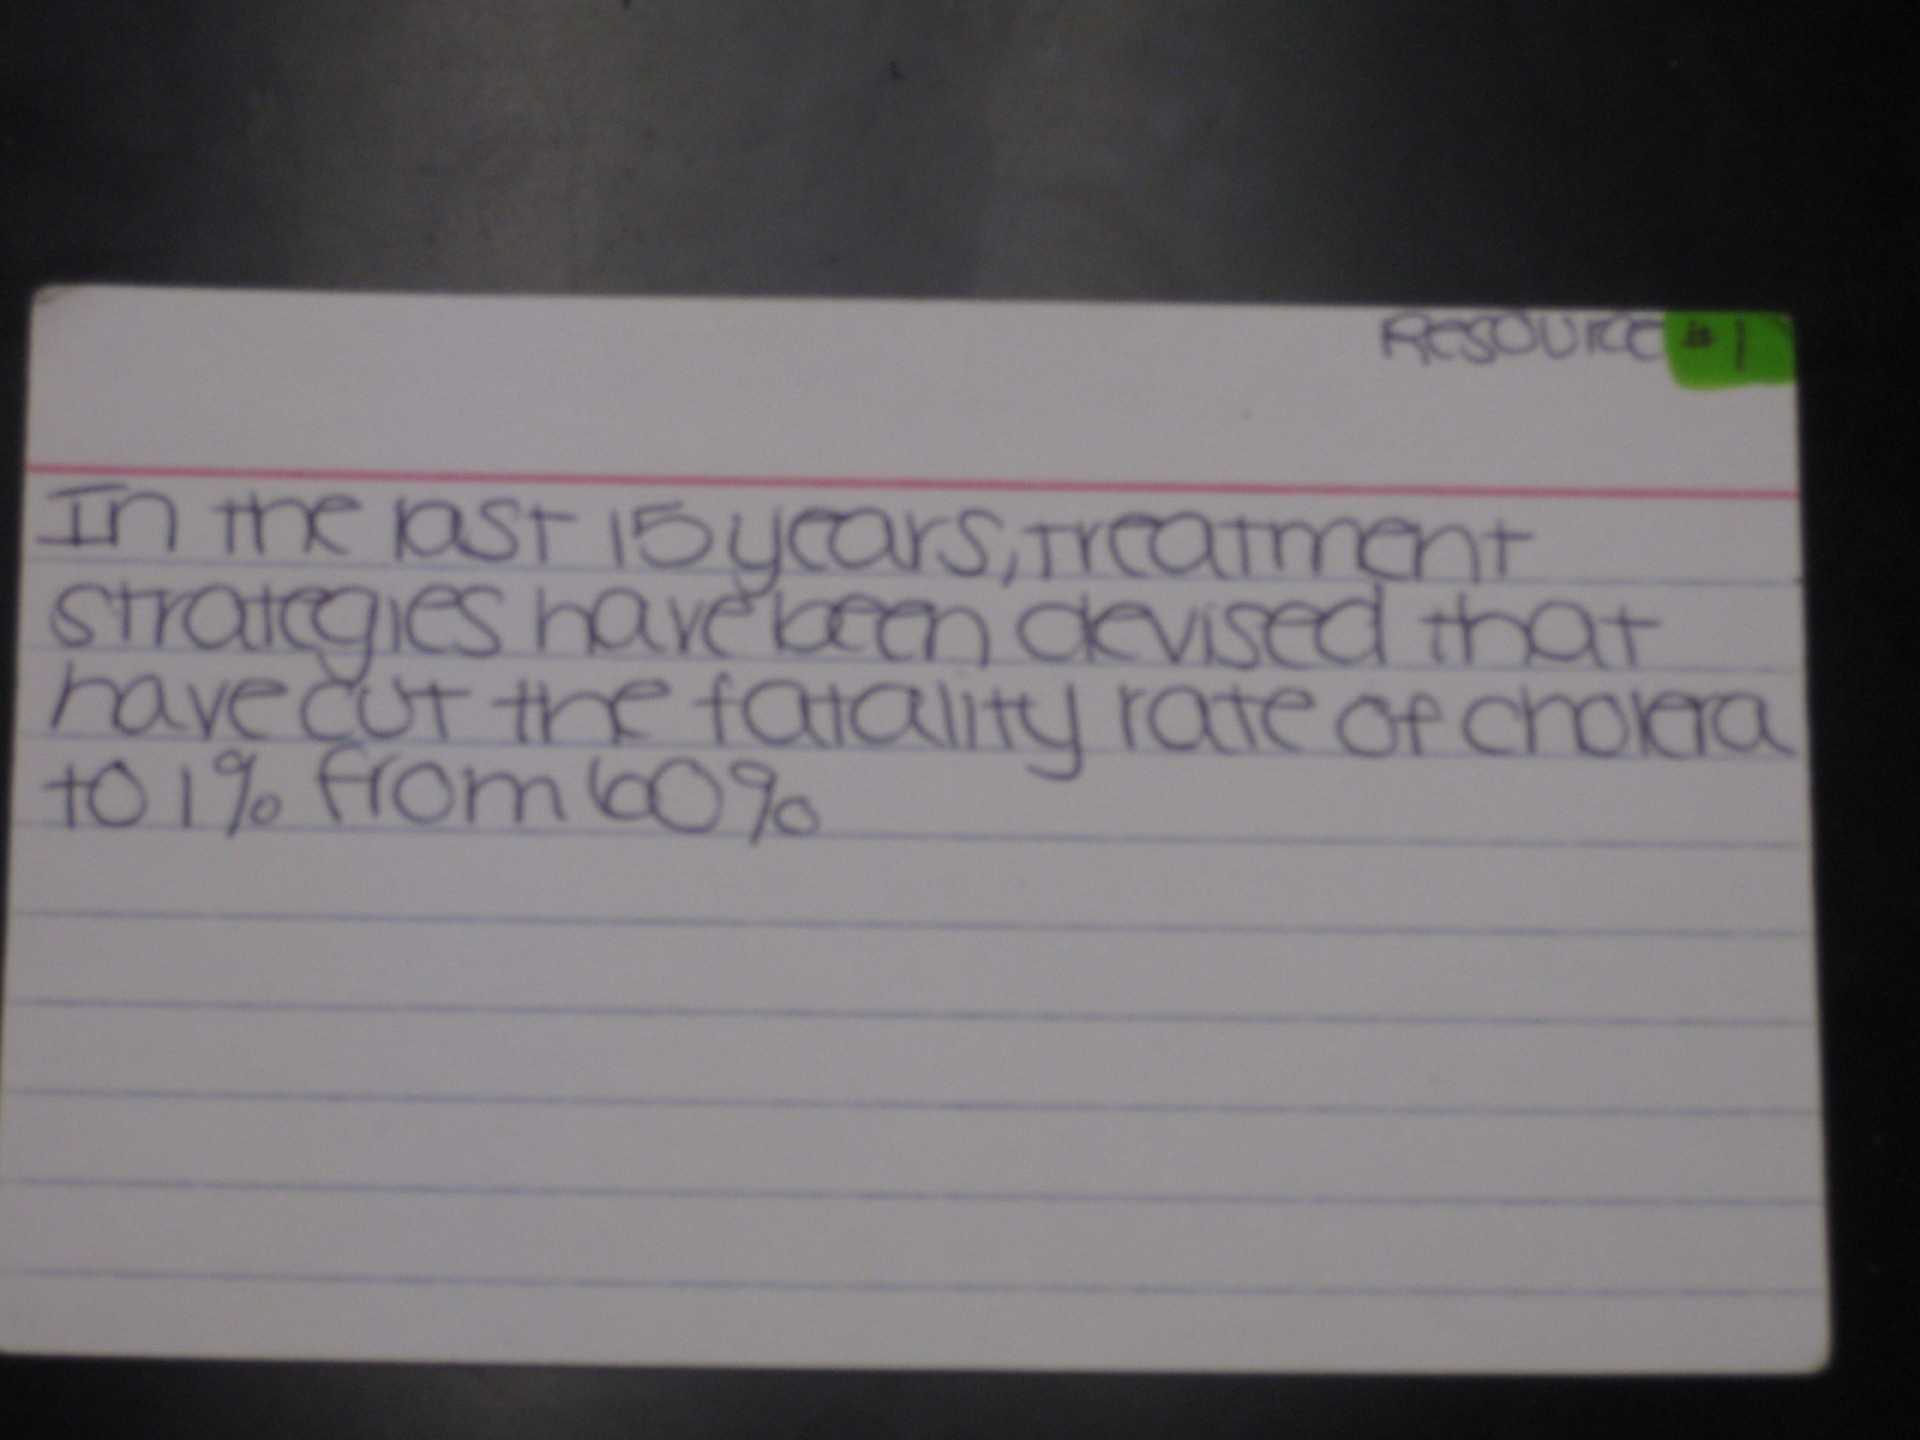 Resource #1
In the last 15 years, treatment
strategies have been devised that
have cut the fatality rate of cholera
to 1% from 60%